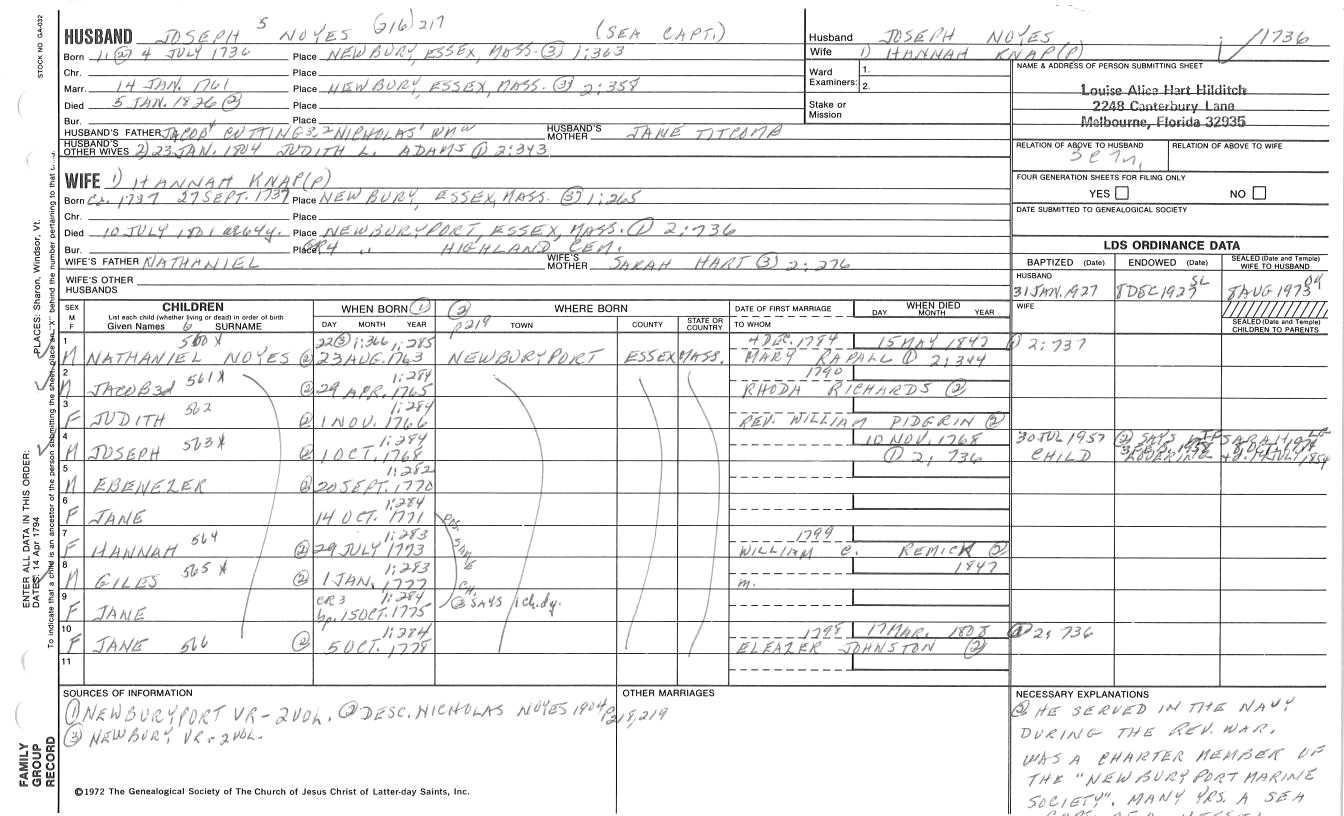 HUSBAND JOSEPH 5 NOYES (216) 217 (SEA CAPT.)
Born 11 (2) 4 JULY 1736 Place NEWBURY, ESSEX, MASS. (3) 1:363
Chr. Place
Marr. 14 JAN. 1761 Place NEWBURY, ESSEX, MASS. (3) 2:358
Died 5 JAN. 1826 (2) Place
Bur. Place
HUSBAND'S FATHER JACOB4 CUTTING3,2 NICHOLAS1 HUSBAND'S MOTHER JANE TITCOMB
HUSBAND'S OTHER WIVES 2) 23 JAN. 1804 JUDITH L. ADAMS (1) 2:343
WIFE 1) HANNAH KNAP(P)
Born Ca. 1737 27 SEPT. 1737 Place NEWBURY, ESSEX, MASS. (3) 1:265
Chr. Place
Died 10 JULY 1801 ae 64y. Place NEWBURYPORT, ESSEX, MASS. (1) 2:736
Bur. Place GR4 " HIGHLAND CEM.
WIFE'S FATHER NATHANIEL WIFE'S MOTHER SARAH HART (3) 2:276
WIFE'S OTHER HUSBANDS
Husband JOSEPH NOYES 1736
Wife 1) HANNAH KNAP(P)
Ward Examiners: 1.
2.
Stake or Mission
NAME & ADDRESS OF PERSON SUBMITTING SHEET
Louise Alice Hart Hilditch
2248 Canterbury Lane
Melbourne, Florida 32935
RELATION OF ABOVE TO HUSBAND RELATION OF ABOVE TO WIFE
FOUR GENERATION SHEETS FOR FILING ONLY
YES NO
DATE SUBMITTED TO GENEALOGICAL SOCIETY
LDS ORDINANCE DATA
BAPTIZED (Date) ENDOWED (Date) SEALED (Date and Temple) WIFE TO HUSBAND
HUSBAND
31 JAN. 1927 8 DEC 1927 SL 8 AUG 1973
WIFE SEALED (Date and Temple) CHILDREN TO PARENTS
SEX M F CHILDREN WHEN BORN (1) (2) p219 WHERE BORN DATE OF FIRST MARRIAGE WHEN DIED
List each child (whether living or dead) in order of birth
Given Names 6 SURNAME DAY MONTH YEAR TOWN COUNTY STATE OR COUNTRY TO WHOM DAY MONTH YEAR
1 560 X 22 (3) 1:366 1:285 4 DEC. 1784 15 MAY 1847 (1) 2:737
M NATHANIEL NOYES (2) 23 AUG. 1763 NEWBURYPORT ESSEX MASS. MARY RAPALL (1) 2:344
2 561 X 1:284 1790
M JACOB 3d (2) 29 APR. 1765 RHODA RICHARDS (2)
3 562 1:284
F JUDITH (2) 1 NOV. 1766 REV. WILLIAM PIDGRIN (2)
4 563 X 1:284 10 NOV. 1768 30 JUL 1957
M JOSEPH (2) 1 OCT. 1768 (1) 2:736 CHILD
5 1:282
M EBENEZER (2) 20 SEPT. 1770
6 1:284
F JANE 14 OCT. 1771
7 564 1:283 1799
F HANNAH (2) 29 JULY 1773 WILLIAM C. REMICK (2)
8 565 X 1:283 1847
M GILES (2) 1 JAN. 1777 m.
9 CR3 1:284
F JANE bp. 15 OCT. 1775 (2) SAYS 1 ch.dy.
POS. SAME CH.
10 566 1:284 1798 17 MAR. 1808 (1) 2:736
F JANE (2) 5 OCT. 1778 ELEAZER JOHNSTON (2)
11
SOURCES OF INFORMATION OTHER MARRIAGES NECESSARY EXPLANATIONS
(1) NEWBURYPORT VR - 2 VOL. (2) DESC. NICHOLAS NOYES 1904 p218,219
(3) NEWBURY VR. - 2 VOL.
(2) HE SERVED IN THE NAVY
DURING THE REV. WAR.
WAS A CHARTER MEMBER OF
THE "NEWBURYPORT MARINE
SOCIETY". MANY YRS. A SEA
©1972 The Genealogical Society of The Church of Jesus Christ of Latter-day Saints, Inc.
STOCK NO. GA-032
PLACES: Sharon, Windsor, Vt.
ENTER ALL DATA IN THIS ORDER:
DATES: 14 Apr 1794
To indicate that a child is an ancestor of the person submitting the sheet, place an "X" behind the number pertaining to that
FAMILY GROUP RECORD